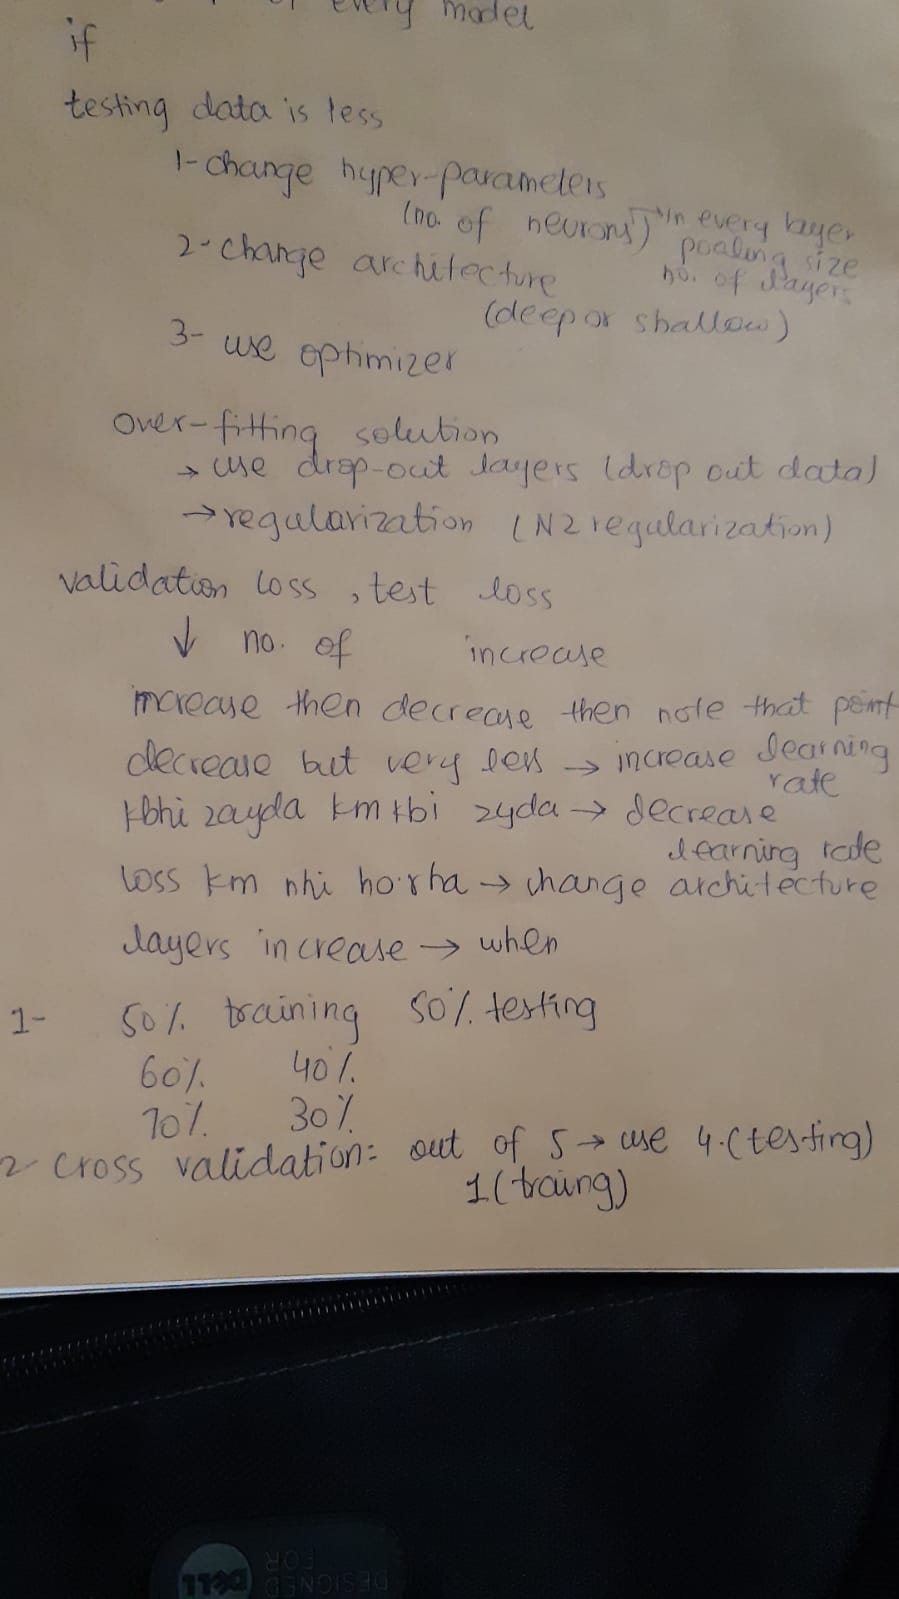 every model
if
testing data is less
1- change hyper-parameters
(no. of neurons) → in every layer
pooling size
no. of layers
2- change architecture
(deep or shallow)
3- use optimizer
over-fitting solution
→ use drop-out layers (drop out data)
→ regularization (N2 regularization)
validation loss , test loss
↓ no. of increase
increase then decrease then note that point
decrease but very less → increase learning
rate
kbhi zayda km kbi zyda → decrease
learning rate
loss km nhi ho rha → change architecture
layers increase → when
1- 50% training 50% testing
60% 40%
70% 30%
2- cross validation: out of 5 → use 4 (testing)
1 (traing)
DELL
DESIGNED
FOR